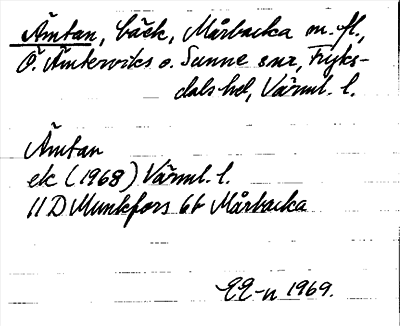 Ämtan, bäck, Mårbacka m. fl.,
Ö. Ämterviks o. Sunne snr, Fryks-
dals hd, Värml. l.
Ämtan
ek (1968) Värml. l.
11D Munkfors 6b Mårbacka
1969.